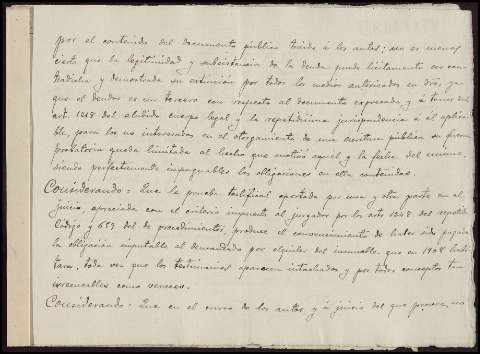 por el contenido del documento público traido á los autos; no es menos
cierto que la legitimidad y subsistencia de la deuda puede licitamente ser con-
tradicha y demostrada su extinción por todos los medios autorizados en dro, ya
que el deudor es un tercero con respecto al documento expresado, y á tenor del
art. 1218 del aludido cuerpo legal y la repetidísima jurisprudencia á él aplica-
ble, para los no intervinientes en el otorgamiento de una escritura pública su fuerza
probatoria queda limitada al hecho que motivó aquel y la fecha del mismo,
siendo perfectamente impugnables las obligaciones en ella contenidas.
Considerando = Que la prueba testifical aportada por una y otra parte en el
juicio, apreciada con el criterio impuesto al juzgador por los arts 1248 del repetido
Código y 659 del de procedimientos, produce el convencimiento de haber sido pagada
la obligación imputable al demandado por alquiler del inmueble que en 1908 habi-
tara, toda vez que los testimonios aparecen intachados y por todos conceptos tan
irrecusables como veraces.
Considerando = Que en el curso de los autos, y á juicio del que provee, no